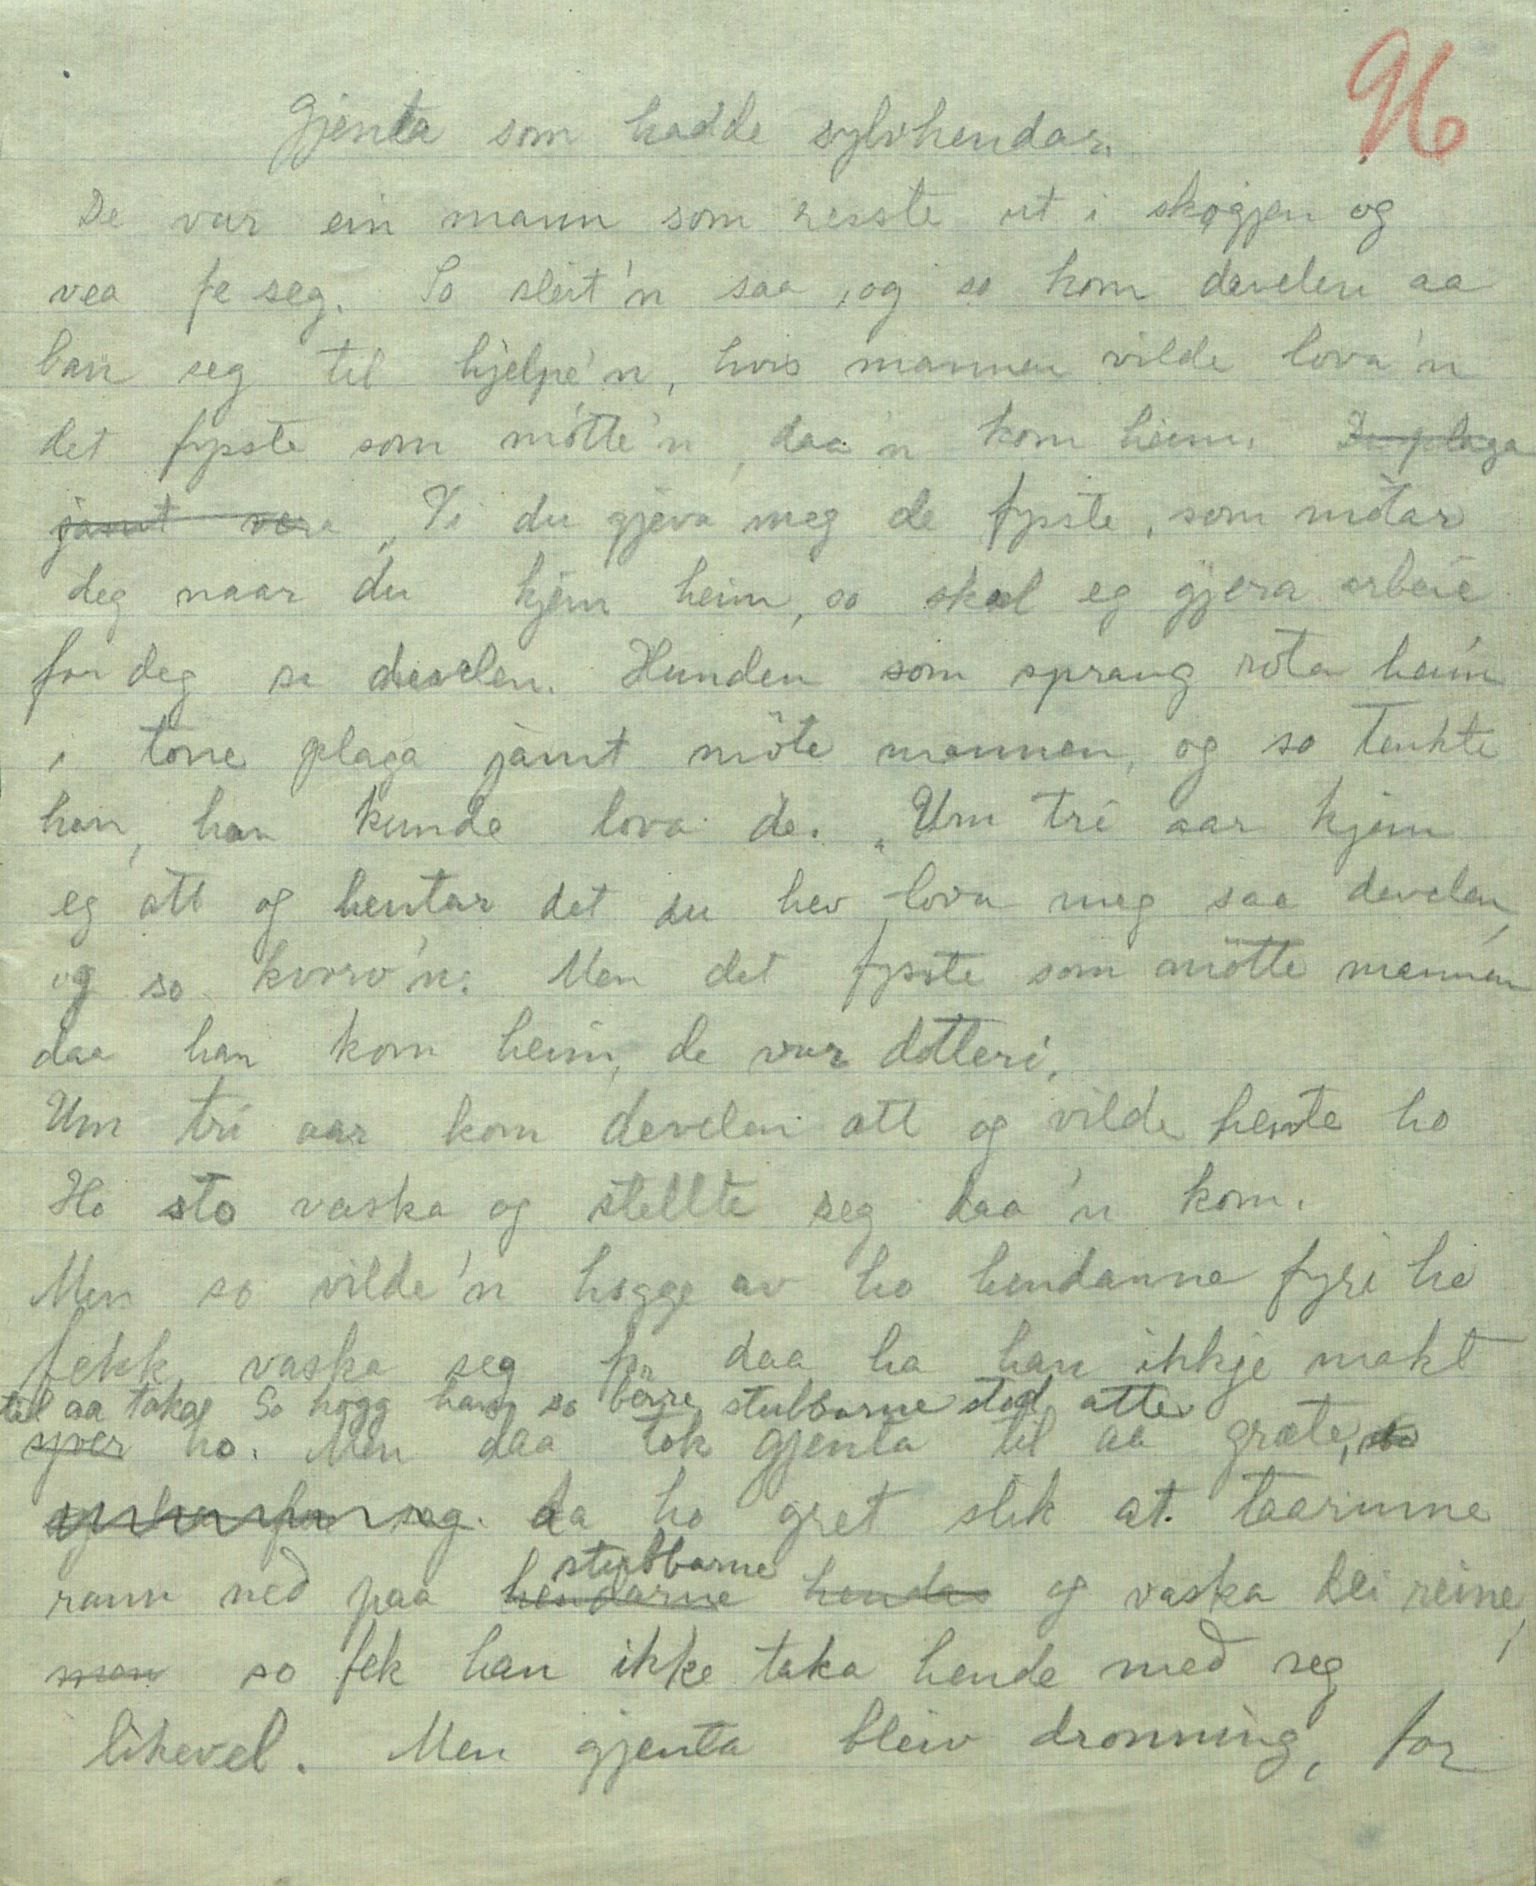 96
Gjenta som hadde sylvhendar.
De var ein mann som reiste ut i skogjen og
vea fe seg. So sleit'n saa, og so kom develen aa
bau seg til hjelpe'n, hvis mannen vilde lova'n
det fyrste som møtte'n, daa'n kom heim. De plaga
jamt vera „Vi du gjeva meg de fyrste, som møtar
deg naar du kjem heim, so skal eg gjera arbeie
for deg sa develen. Hunden som sprang rota heim
i tone plaga jamt møte mannen, og so tenkte
han, han kunde lova de. „Um tri aar kjem
eg att og hentar det du hev lova meg saa develen,
og so kvarv'n. Men det fyrste som møtte mannen
daa han kom heim, de var dotteri.
Um tri aar kom develen att og vilde hente ho
Ho sto vaska og stellte seg daa'n kom.
Men so vilde'n hogge av ho hendanne fyri ho
fekk vaska seg for daa ha han ikkje makt
til aa taka So hogg han so berre stubbarne stod atte
yver ho. Men daa tok gjenta til aa græte, so
seg. da ho gret slik at taarinne
stubbarne
rann ned paa hendarne hendes og vaska dei reine,
men so fek han ikke taka hende med seg
likevel. Men gjenta bleiv dronning, for